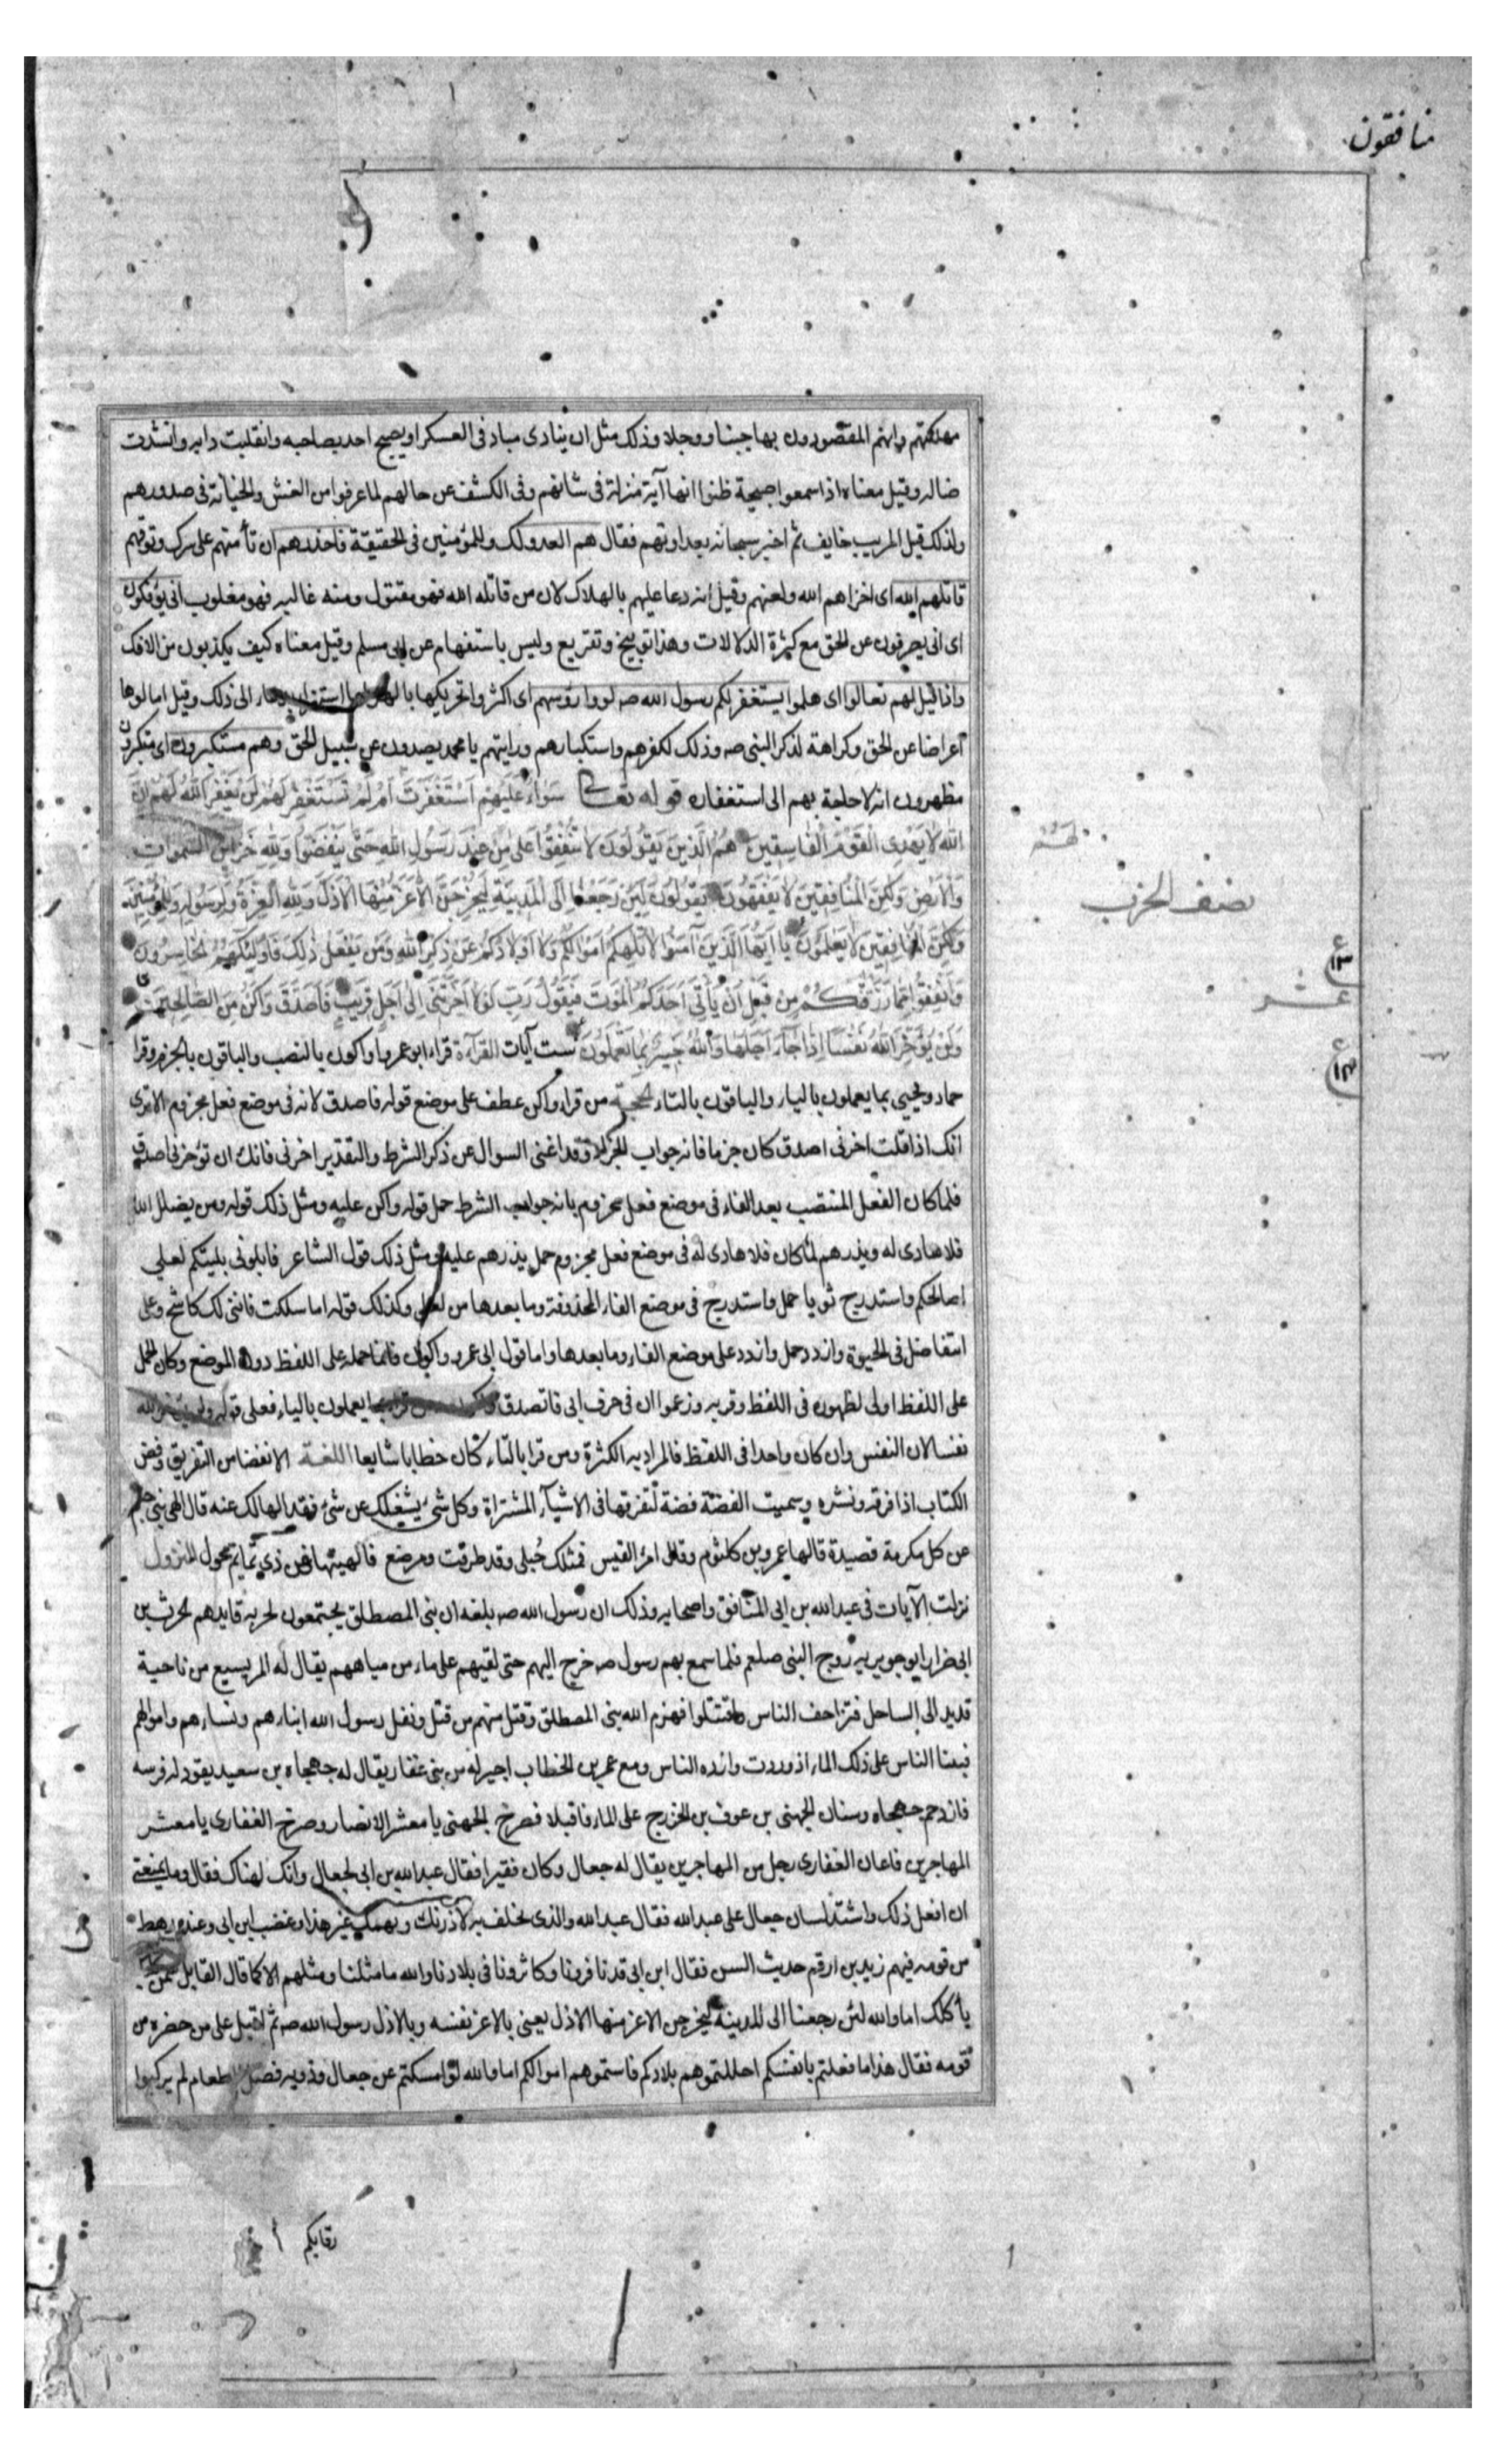 منافقون
مهلكتهم وانهم المقصودون بها جبنا ووجلا وذلك مثل ان ينادى مناد فى العسكر او يصيح احد بصاحبه وانفلتت دابه وانشدت
ضاله وقيل معناه اذا سمعوا صيحة ظنوا انها آية منزلة فى شانهم وفى الكشف عن حالهم لما عرفوا من الغش والخيانة فى صدورهم
ولذلك قيل المريب خايف ثم اخبر سبحانه بعداوتهم فقال هم العدو لك وللمؤمنين فى الحقيقة فاحذرهم ان تأمنهم على سرك وتوقهم
قاتلهم الله اى اخزاهم الله ولعنهم وقيل انه دعا عليهم بالهلاك لان من قاتله الله فهو مقتول ومنه غالبه فهو مغلوب انى يؤفكون
اى انى يصرفون عن الحق مع كثرة الدلالات وهذا توبيخ وتقريع وليس باستفهام عن ابى مسلم وقيل معناه كيف يكذبون من الافك
واذا قيل لهم تعالوا اى هلموا يستغفر لكم رسول الله صه لووا رؤسهم اى اكثروا تحريكها بالهزء لها استهزاء بدعاء الى ذلك وقيل امالوها
اعراضا عن الحق وكراهة لذكر النبى صه وذلك لكفرهم واستكبارهم ورايتهم يا محمد يصدون عن سبيل الحق وهم مستكبرون اى متكبرون
مظهرون انه لا حاجة بهم الى استغفاره قوله تعالى سَوَاءٌ عَلَيْهِمْ اَسْتَغْفَرْتَ اَمْ لَمْ تَسْتَغْفِرْ لَهُمْ لَنْ يَغْفِرَ اللهُ لَهُمْ اِنَّ
لهم
اللهَ لَا يَهْدِى الْقَوْمَ الْفَاسِقِينَ هُمُ الَّذِينَ يَقُولُونَ لَا تُنْفِقُوا عَلَى مَنْ عِنْدَ رَسُولِ اللهِ حَتَّى يَنْفَضُّوا وَلِلهِ خَزَائِنُ السَّمٰوَاتِ
وَالْاَرْضِ وَلٰكِنَّ الْمُنَافِقِينَ لَا يَفْقَهُونَ يَقُولُونَ لَئِنْ رَجَعْنَا اِلَى الْمَدِينَةِ لَيُخْرِجَنَّ الْاَعَزُّ مِنْهَا الْاَذَلَّ وَلِلهِ الْعِزَّةُ وَلِرَسُولِهِ وَلِلْمُؤْمِنِينَ
نصف الحزب
وَلٰكِنَّ الْمُنَافِقِينَ لَا يَعْلَمُونَ يَا اَيُّهَا الَّذِينَ آمَنُوا لَا تُلْهِكُمْ اَمْوَالُكُمْ وَلَا اَوْلَادُكُمْ عَنْ ذِكْرِ اللهِ وَمَنْ يَفْعَلْ ذٰلِكَ فَاُولٰئِكَ هُمُ الْخَاسِرُونَ
ع ١٣
وَاَنْفِقُوا مِمَّا رَزَقْنَاكُمْ مِنْ قَبْلِ اَنْ يَأْتِىَ اَحَدَكُمُ الْمَوْتُ فَيَقُولَ رَبِّ لَوْلَا اَخَّرْتَنِى اِلَى اَجَلٍ قَرِيبٍ فَاَصَّدَّقَ وَاَكُنْ مِنَ الصَّالِحِينَ
عشر
وَلَنْ يُؤَخِّرَ اللهُ نَفْسًا اِذَا جَاءَ اَجَلُهَا وَاللهُ خَبِيرٌ بِمَا تَعْمَلُونَ ست آيات القرآءة قراء ابو عمرو واكون بالنصب والباقون بالجزم وقرا
ع ١٤
حماد ويحيى بما يعملون بالياء والباقون بالتاء الحجة من قراء واكن عطف على موضع قوله فاصدق لانه فى موضع فعل مجزوم الا ترى
انك اذا قلت اخرنى اصدق كان جزما فانه جواب الجزاء وقد اغنى السوال عن ذكر الشرط والتقدير اخرنى فانك ان تؤخرنى اصدق
فلما كان الفعل المنتصب بعد الفاء فى موضع فعل مجزوم بانه جواب الشرط حمل قوله واكن عليه ومثل ذلك قوله ومن يضلل الله
فلا هادى له ويذرهم لما كان فلا هادى له فى موضع فعل مجزوم حمل يذرهم عليه ومثل ذلك قول الشاعر فابلونى بليتكم لعلى
اصالحكم واستدرج نويا حمل واستدرج فى موضع الفاء المحذوفة وما بعدها من لعلى وكذلك قوله اما سلكت فاننى لك كاشح وعلى
انتقاضك فى الحيوة وازدد حمل وازدد على موضع الفاء وما بعدها واما قول ابى عمرو واكون فانما حمله على اللفظ دون الموضع وكان الحمل
على اللفظ اولى لظهوره فى اللفظ وقربه وزعموا ان فى حرف ابى فاتصدق واكون من قراء بما يعملون بالياء فعلى قوله ولن يؤخر الله
نفسا لان النفس وان كان واحدا فى اللفظ فالمراد به الكثرة ومن قرا بالتاء كان خطابا شايعا اللغة الانفضاض التفريق وفض
الكتاب اذا فرقه ونشره وسميت الفضة فضة لتفرقها فى الاشيآء المشتراة وكل شئ يشغلك عن شئ فقد الهاك عنه قال الهى بنى جشم
عن كل مكرمة قصيدة قالها عمرو بن كلثوم وقال امرؤ القيس فمثلك حبلى وقد طرقت ومرضع فالهيتها عن ذى تمايم محول النزول
نزلت الآيات فى عبد الله بن ابى المنافق واصحابه وذلك ان رسول الله صه بلغه ان بنى المصطلق يجتمعون لحربه قايدهم الحرث بن
ابى ضرار ابو جويريه زوج النبى صلعم فلما سمع بهم رسول صه خرج اليهم حتى لقيهم على ماء من مياههم يقال له المريسيع من ناحية
قديد الى الساحل فتزاحف الناس واقتتلوا فهزم الله بنى المصطلق وقتل منهم من قتل ونفل رسول الله ابناءهم ونساءهم واموالهم
فبينا الناس على ذلك الماء اذ وردت وارده الناس ومع عمر بن الخطاب اجير له من بنى غفار يقال له جهجاه بن سعيد يقود له فرسه
فازدحم جهجاه وسنان الجهنى بن عوف بن الخزرج على الماء فاقتتلا فصرخ الجهنى يا معشر الانصار وصرخ الغفارى يا معشر
المهاجرين فاعان الغفارى رجل من المهاجرين يقال له جعال وكان فقيرا فقال عبد الله بن ابى لجعال وانك لهناك فقال وما يمنعنى
ان افعل ذلك واشتد لسان جعال على عبد الله فقال عبد الله والذى يحلف به لاذرنك ويهمك غير هذا وغضب ابن ابى وعنده رهط
من قومه فيهم زيد بن ارقم حديث السن فقال ابن ابى قد نافرونا وكاثرونا فى بلادنا والله ما مثلنا ومثلهم الا كما قال القايل سمن كلبك
يأكلك اما والله لئن رجعنا الى المدينة ليخرجن الاعز منها الاذل يعنى بالاعز نفسه وبالاذل رسول الله صه ثم اقبل على من حضره من
قومه فقال هذا ما فعلتم بانفسكم احللتموهم بلادكم قاسمتموهم اموالكم اما والله لو امسكتم عن جعال وذويه فضل الطعام لم يركبوا
رقابكم